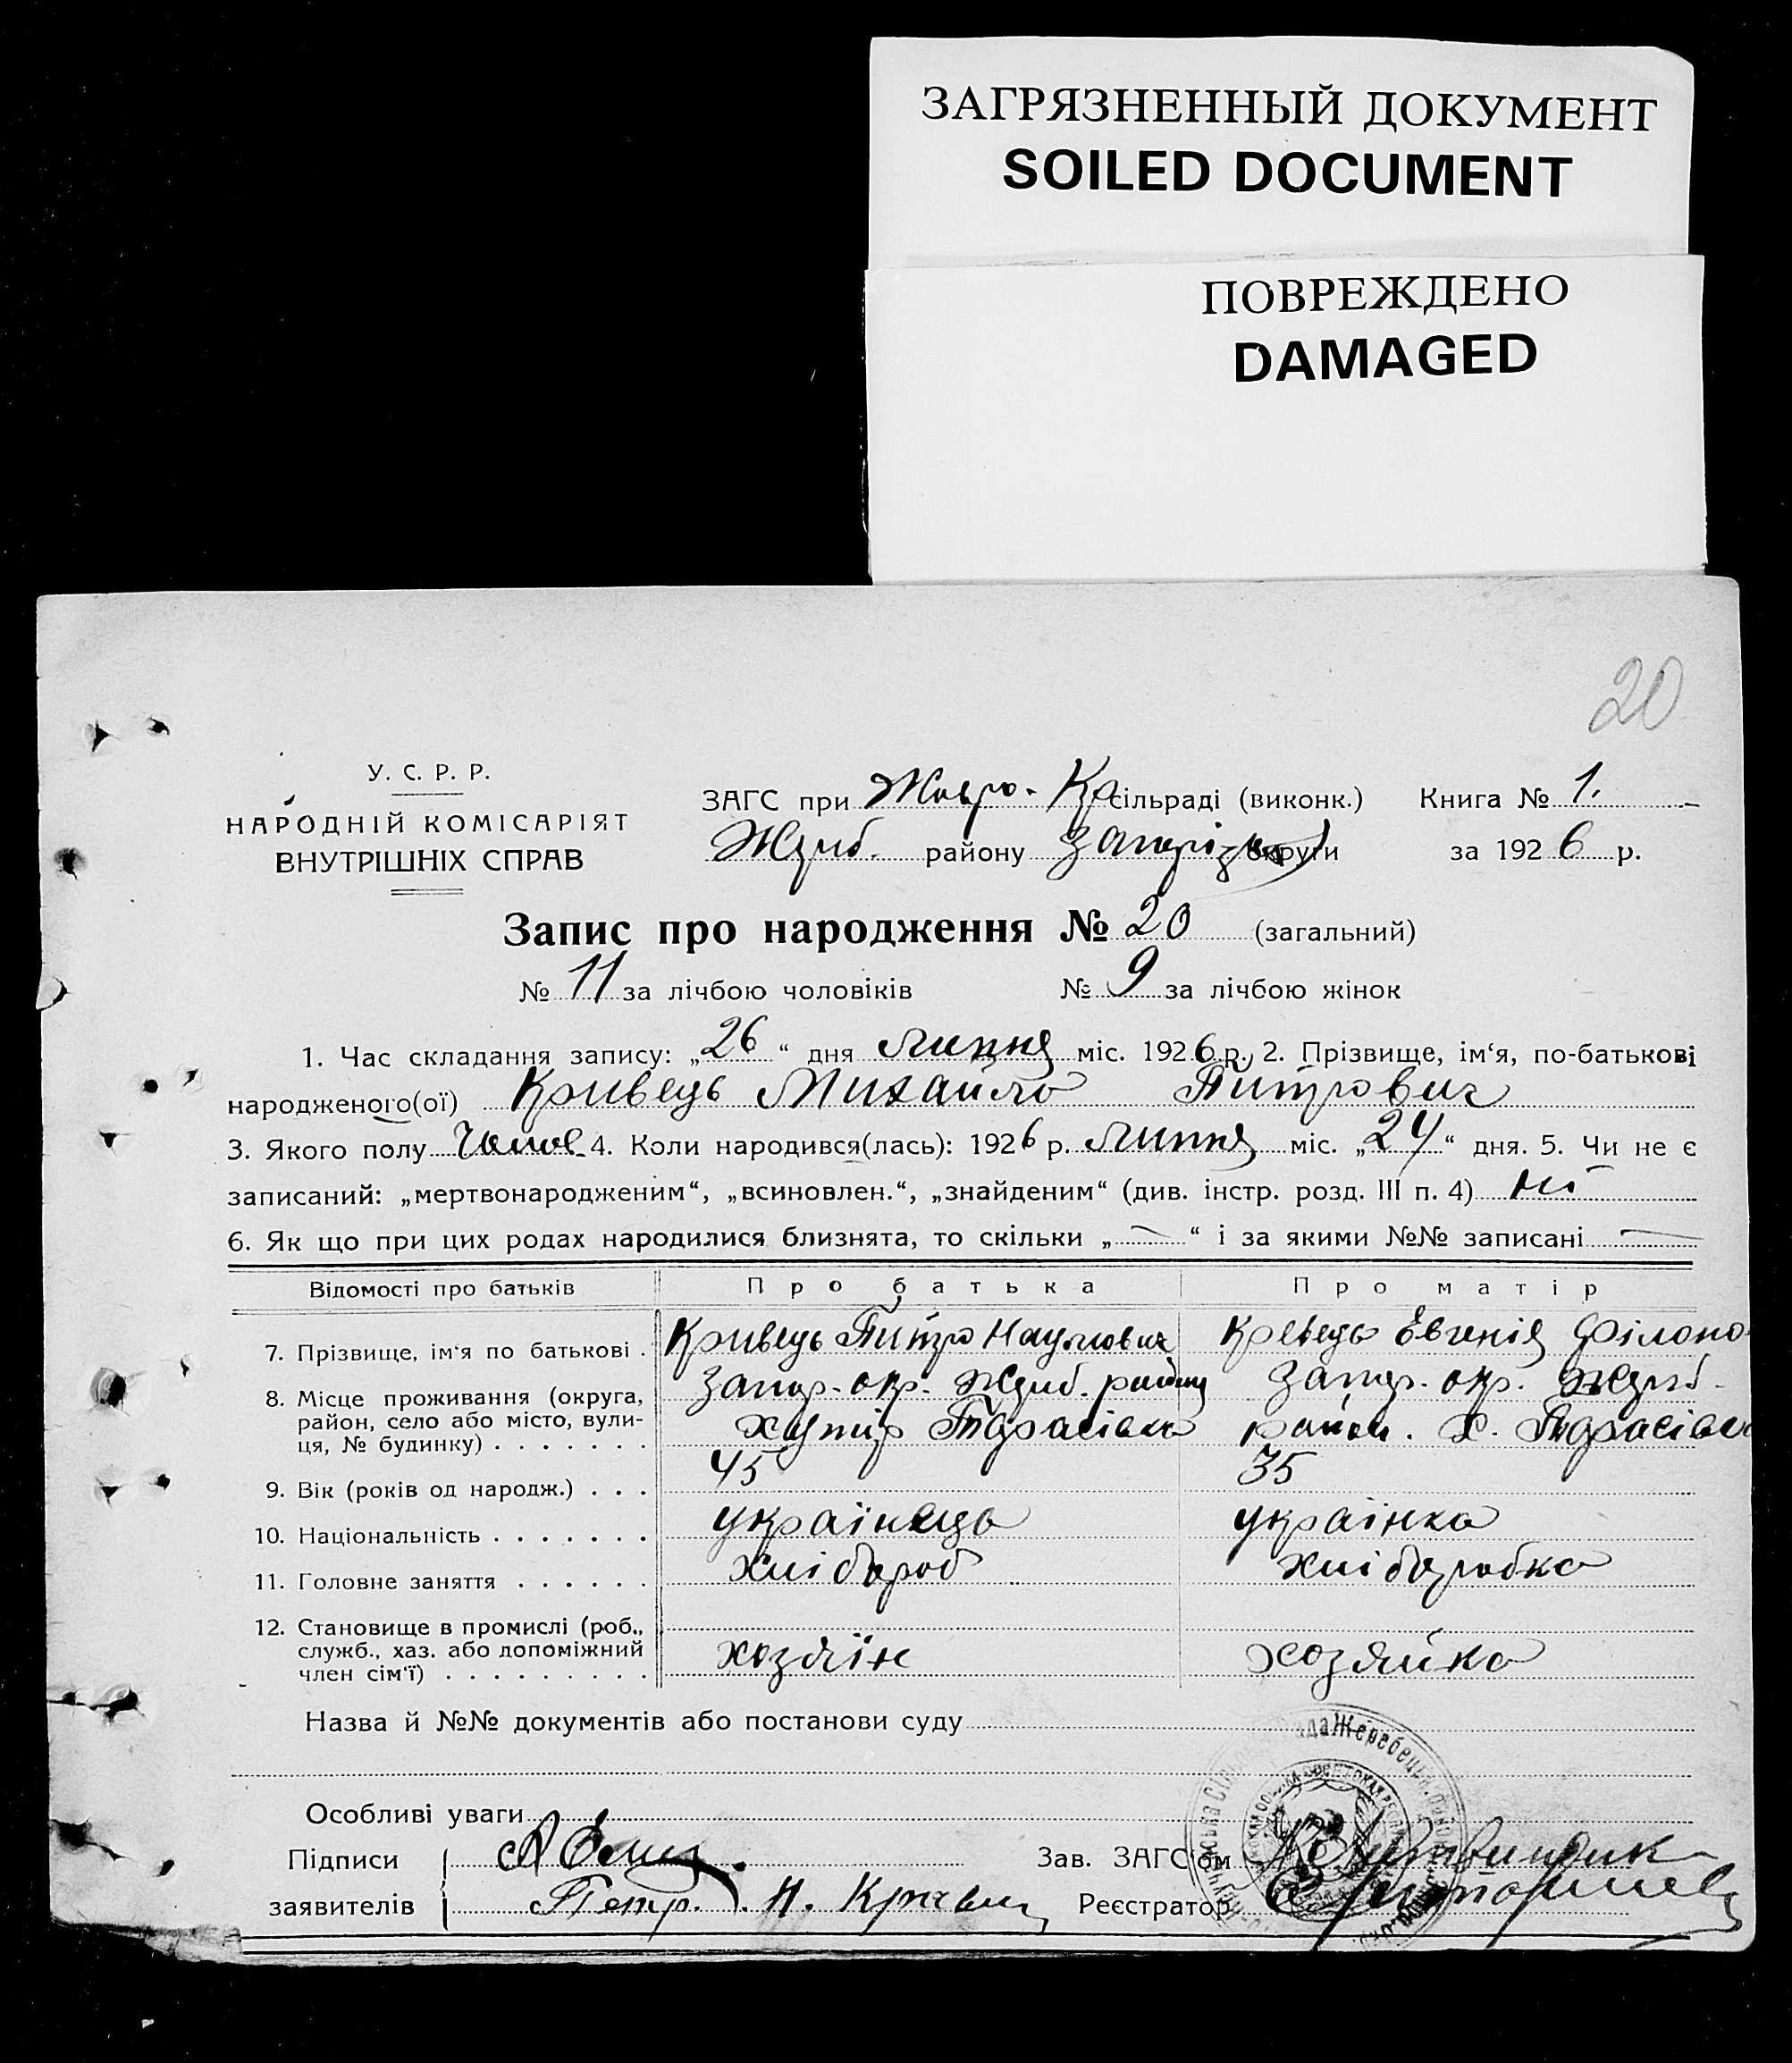 ЗАГРЯЗНЕННЫЙ ДОКУМЕНТ
SOILED DOCUMENT
ПОВРЕЖДЕНО
DAMAGED
20
У. С. Р. Р.
НАРОДНІЙ КОМІСАРІЯТ
ВНУТРІШНІХ СПРАВ
ЗАГС при сільраді (виконк.) Книга № 1.
району округи за 1926 р.
Запис про народження № 20 (загальний)
№ 11 за лічбою чоловіків № 9 за лічбою жінок
1. Час складання запису: „26“ дня липня міс. 1926 р. 2. Прізвище, ім‘я, по-батькові
народженого(ої) Кривець Михайло Питрович
3. Якого полу Чолов. 4. Коли народився(лась): 1926 р. липня міс. „24“ дня. 5. Чи не є
записаний: „мертвонародженим“, „всиновлен.“, „знайденим“ (див. інстр. розд. III п. 4) ні
6. Як що при цих родах народилися близнята, то скільки „—“ і за якими №№ записані —
Відомості про батьків Про батька Про матір
7. Прізвище, ім‘я по батькові . Кривець Питро Наумович Кревець Евгенія Філоно
8. Місце проживання (округа, Запор. окр. Жрб. району Запор. окр. Жрб.
район, село або місто, вули-
ця, № будинку) . . . . . . . хутір Тарасівка район. Х. Тарасівка
9. Вік (років од народж.) . . . 45 35
10. Національність . . . . . . . українець українка
11. Головне заняття . . . . . . хлібороб хліборобка
12. Становище в промислі (роб.,
служб., хаз. або допоміжний
член сім‘ї) . . . . . . . . . хозяїн хозяйка
Назва й №№ документів або постанови суду
Особливі уваги
Підписи Зав. ЗАГС‘ом
заявителів Петр. Н. Реєстратор